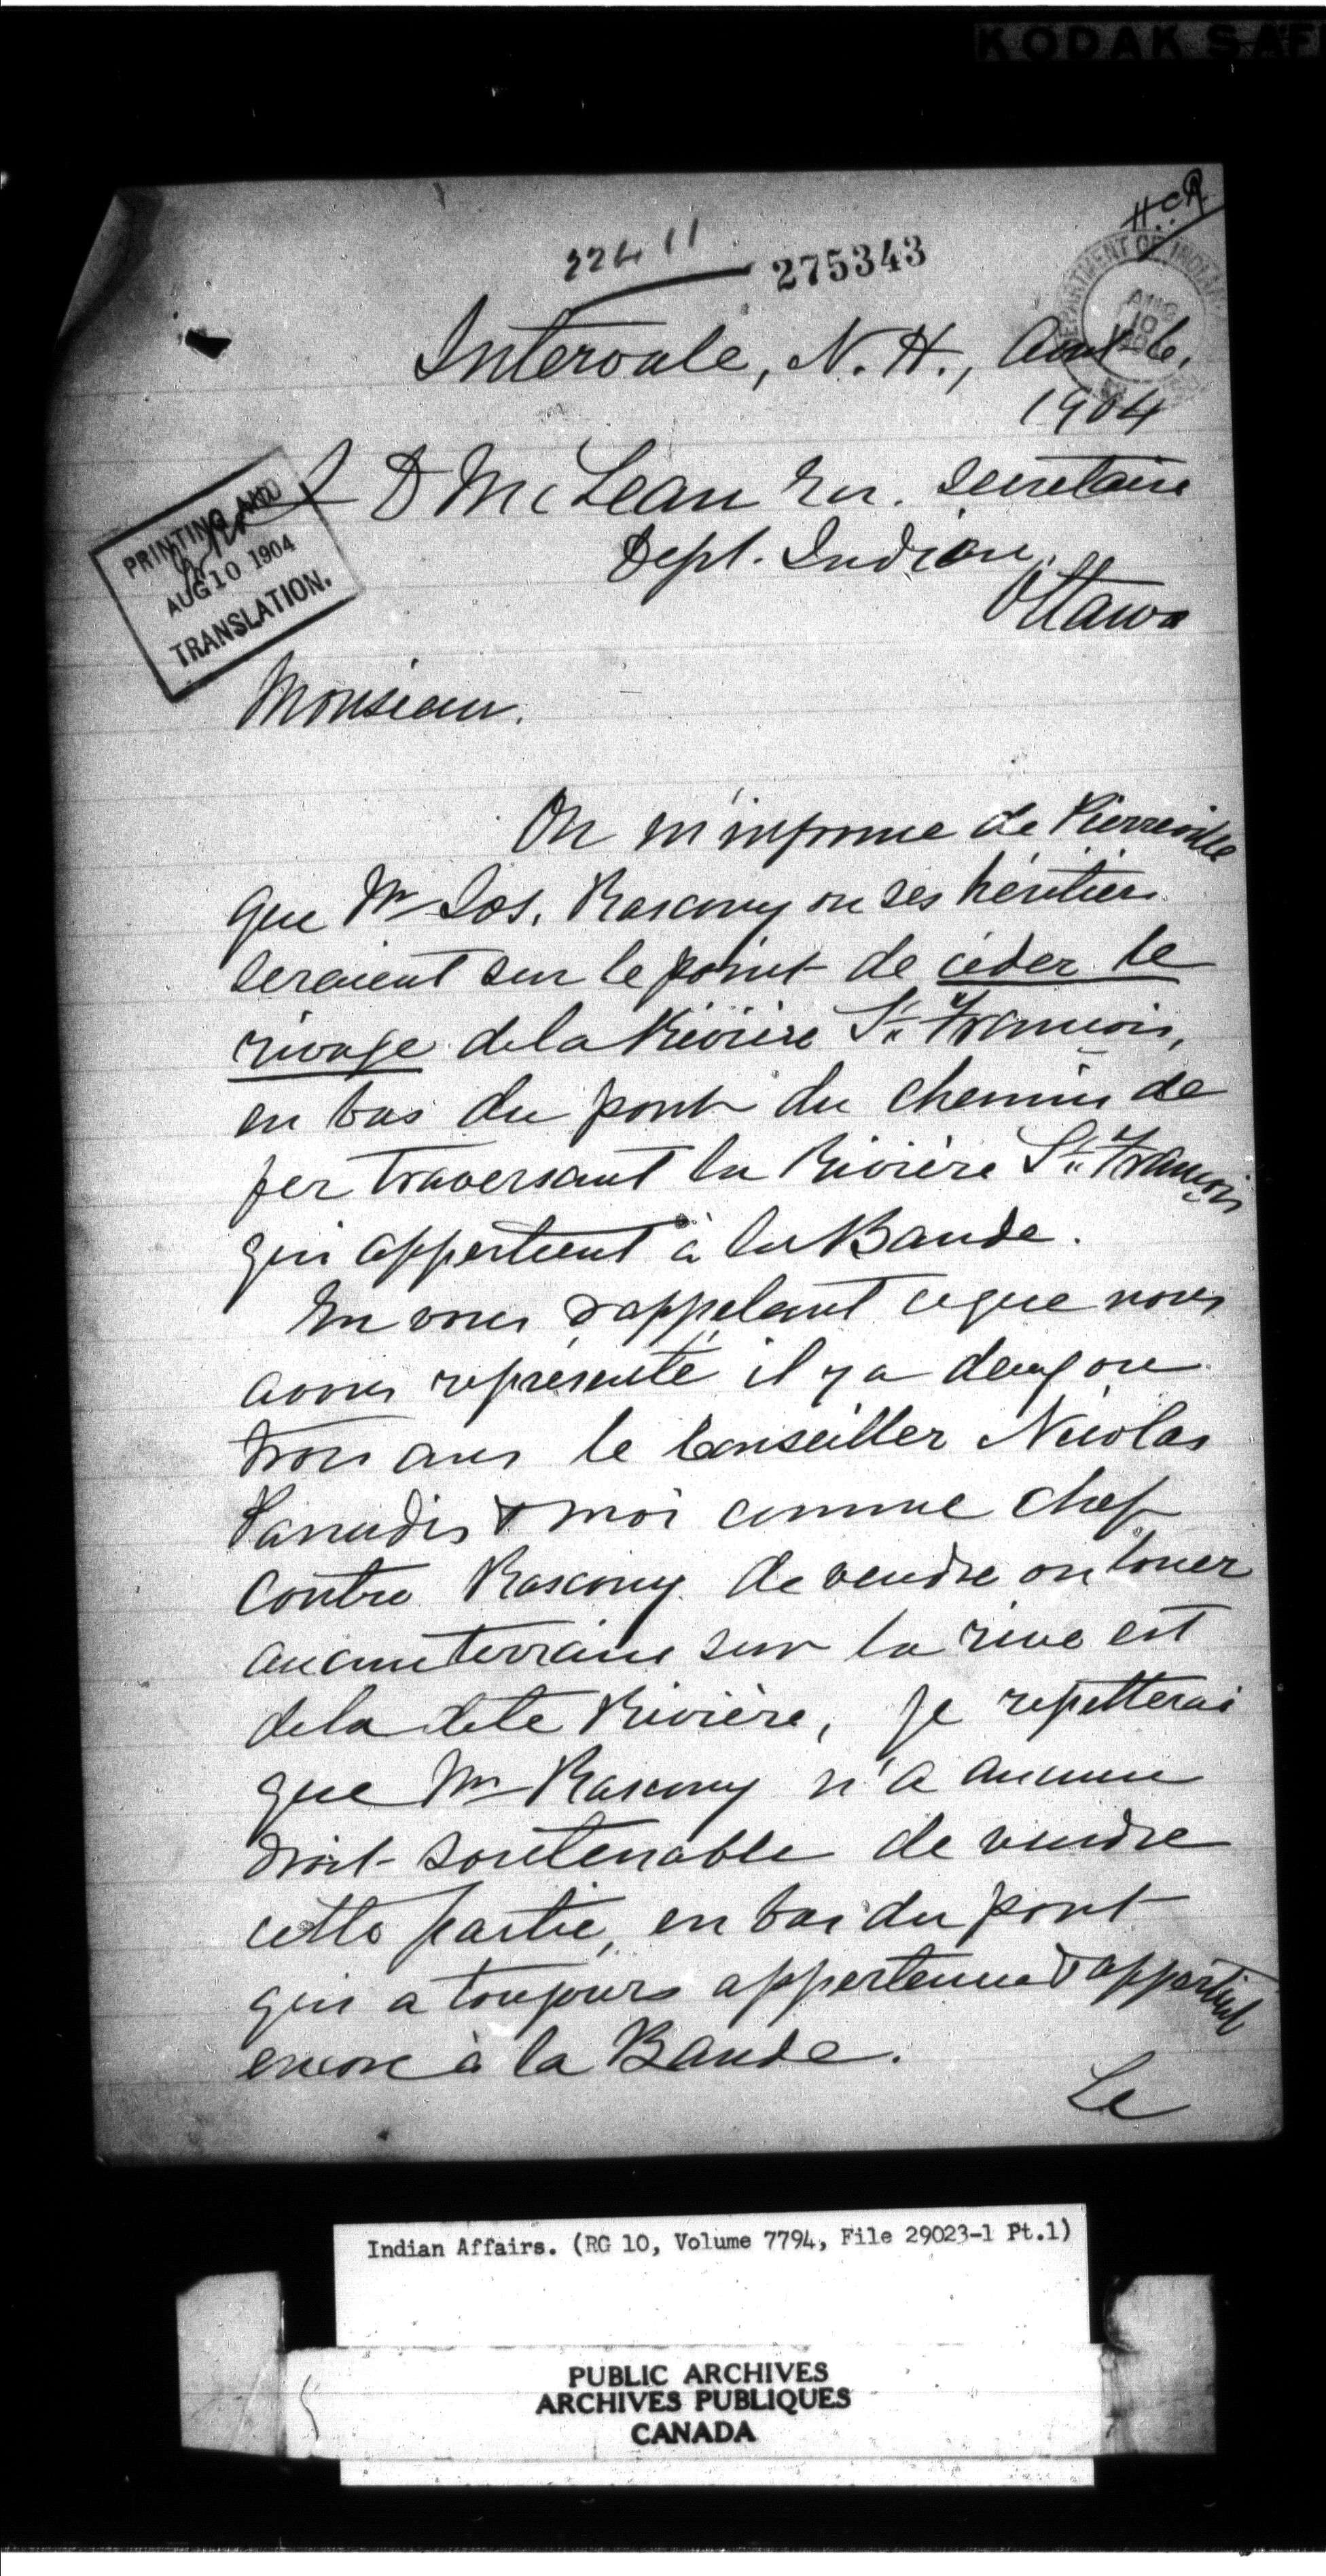 KODAK SAF
H.C.R
22411
275343
DEPARTMENT OF INDIAN
AUG
10
Intervale, N. H., Aout 6,
1904
J D McLean Ecr. Secretaire
Dept. Indien.
Ottawa
PRINTING AND
AUG 10 1904
TRANSLATION.
Monsieur.
On m'informe de Pierreville
que Mr Jos. Rascony ou ses héritiers
seraient sur le point de céder le
rivage de la Rivière St. François,
en bas du pont du chemin de
fer traversant la Rivière St. François
qui appertient à la Bande.
En vous rappelant ce que nous
avons représenté il y a deux ou
trois ans le Conseiller Nicolas
Panadis & moi comme chef
contre Rascony de vendre ou louer
aucune terraine sur la rive est
de la dite Rivière, je repetterai
que Mr Rascony n'a aucune
droit soutenable de vendre
cette partie, en bas du pont
qui a toujours appertenue & appartient
encore à la Bande.
Le
Indian Affairs. (RG 10, Volume 7794, File 29023-1 Pt.1)
PUBLIC ARCHIVES
ARCHIVES PUBLIQUES
CANADA